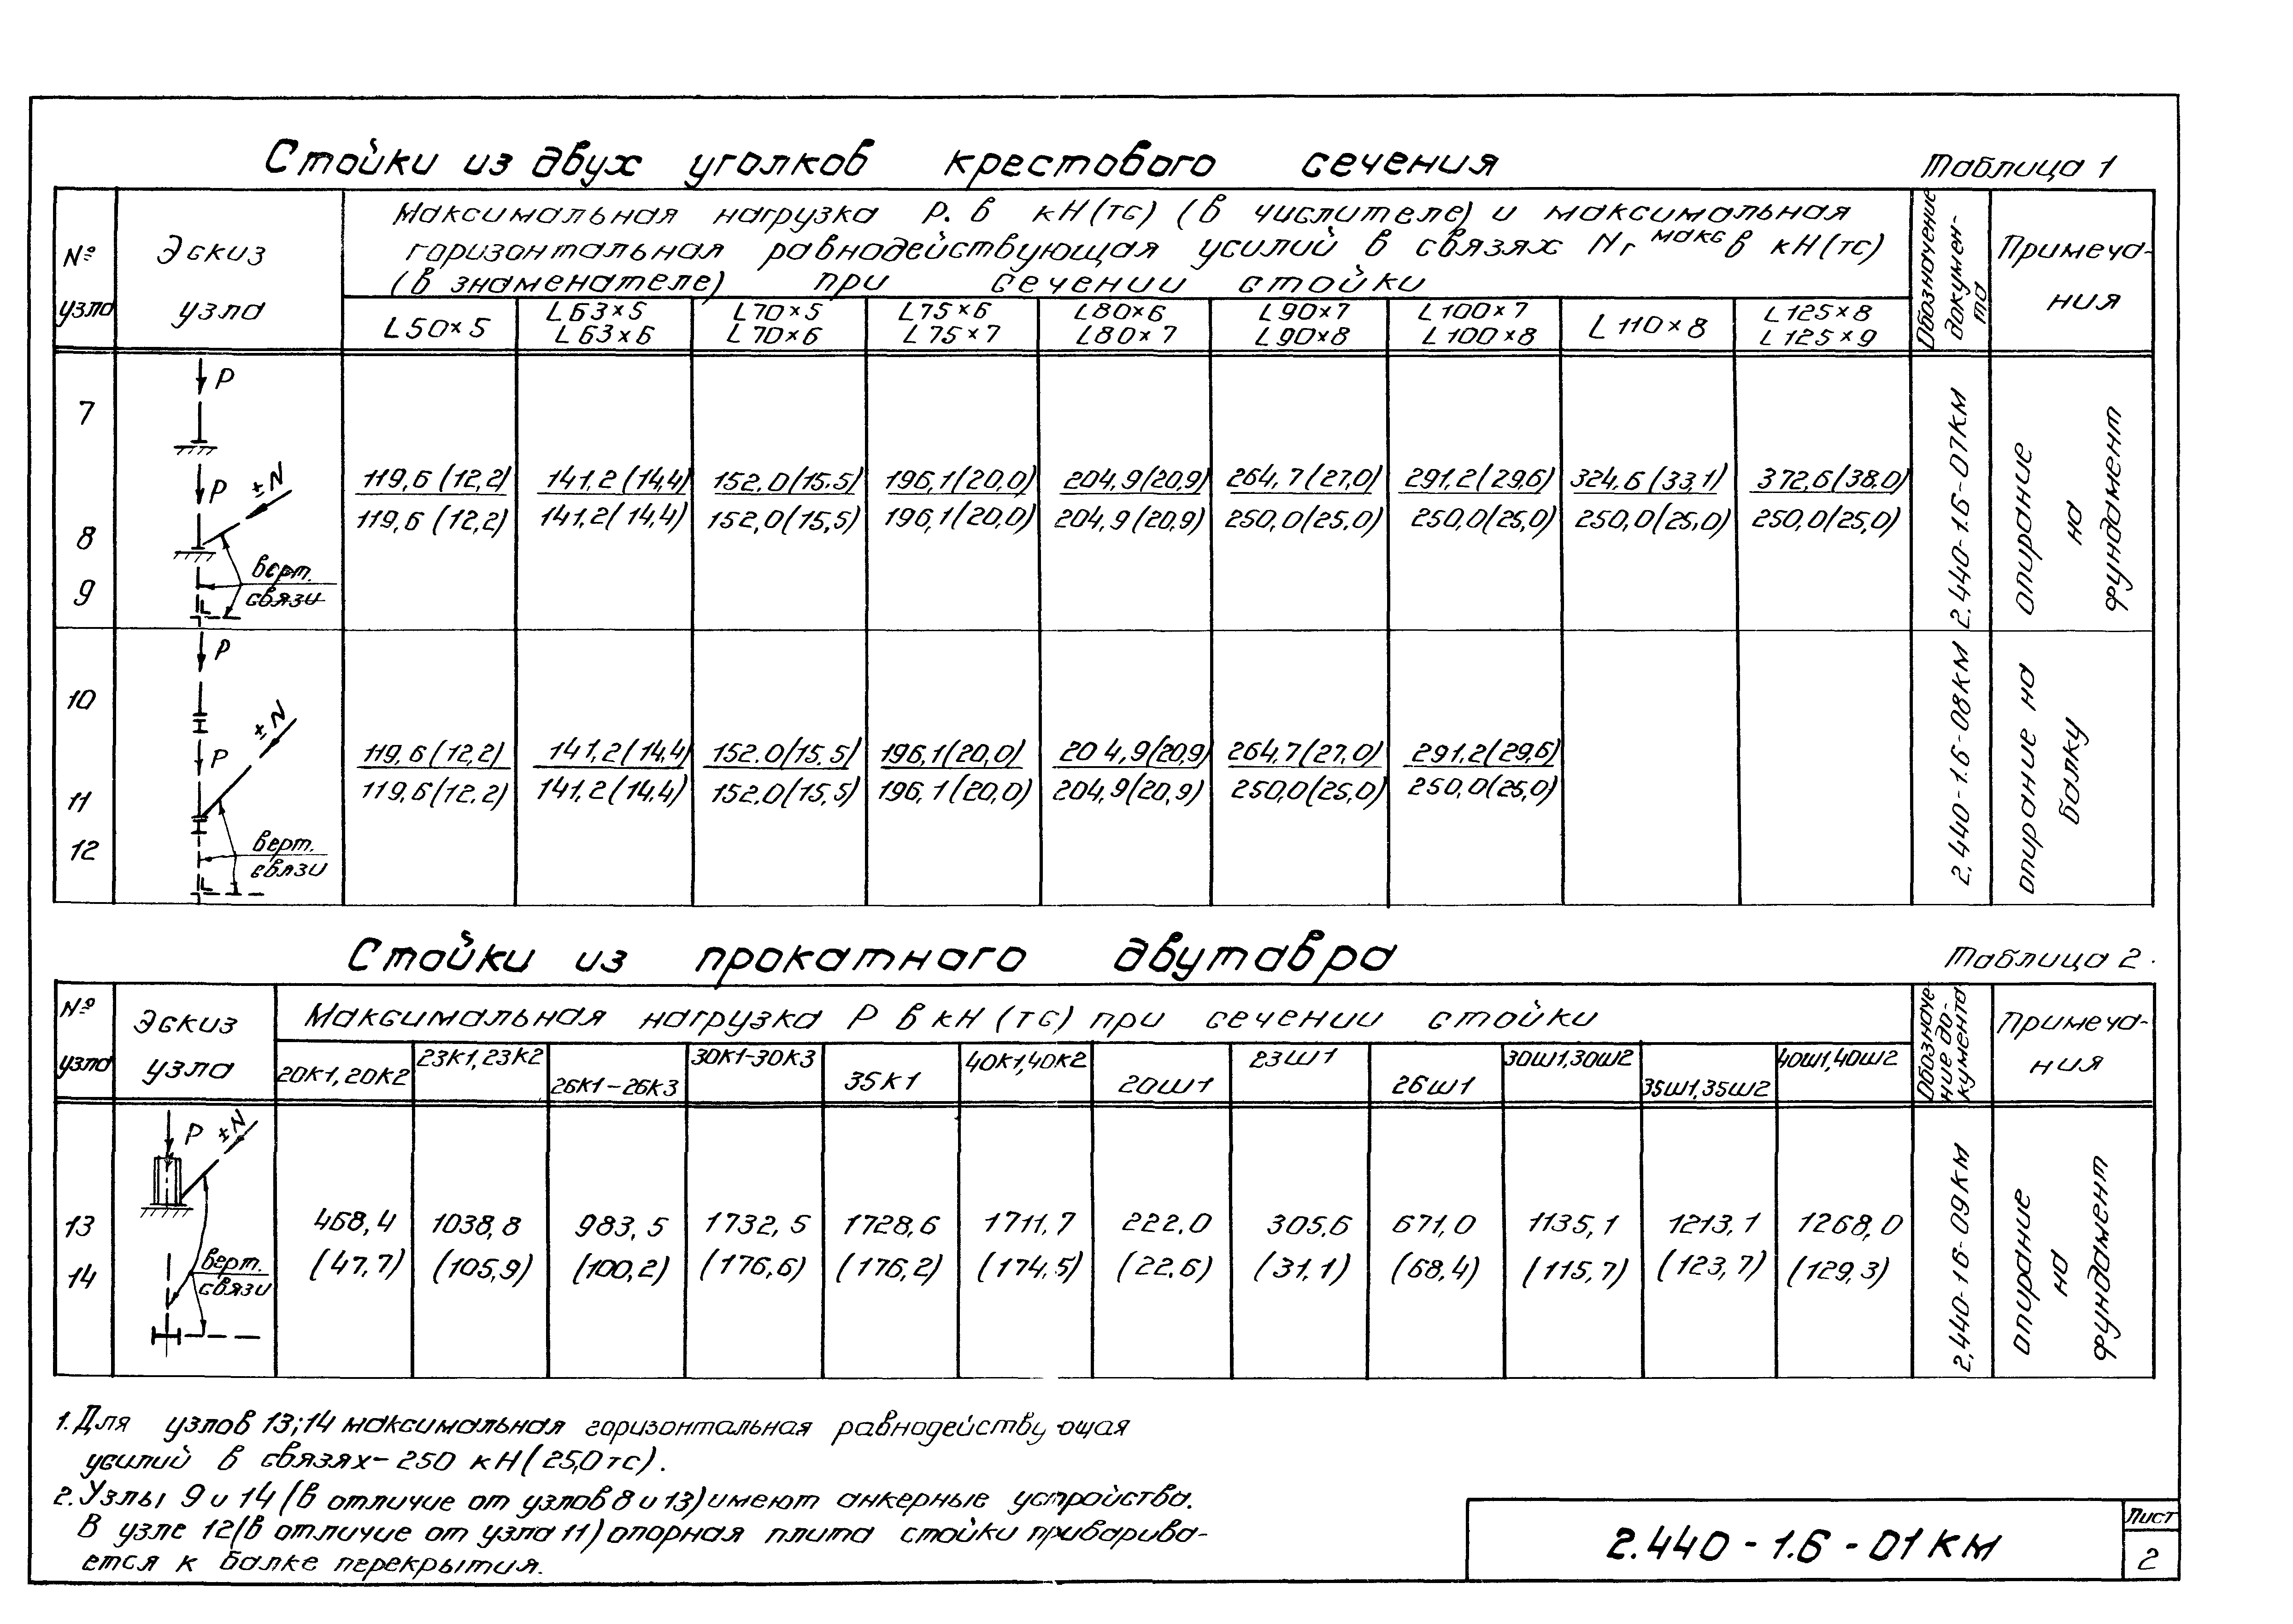 Стойки из двух уголков крестового сечения
Таблица 1
№ узла
Эскиз узла
Максимальная нагрузка Р. в кН(тс) (в числителе) и максимальная
горизонтальная равнодействующая усилий в связях Nг макс в кН(тс)
(в знаменателе) при сечении стойки
Обозначение докумен-та
Примеча-ния
L50×5
L63×5 L63×6
L70×5 L70×6
L75×6 L75×7
L80×6 L80×7
L90×7 L90×8
L100×7 L100×8
L110×8
L125×8 L125×9
7
P
8
P ±N
9
верт. связи
119,6(12,2) 141,2(14,4) 152.0(15.5) 196,1(20,0) 204,9(20,9) 264,7(27,0) 291.2(29,6) 324.6(33,1) 372,6(38.0)
119,6(12,2) 141,2(14,4) 152,0(15,5) 196,1(20,0) 204,9(20,9) 250,0(25,0) 250,0(25,0) 250,0(25,0) 250,0(25,0)
2.440-1.6-07КМ
опирание на фундамент
10
P
11
P ±N
12
верт. связи
119,6(12,2) 141,2(14,4) 152.0(15.5) 196,1(20,0) 204,9(20,9) 264,7(27,0) 291.2(29,6)
119,6(12.2) 141,2(14,4) 152.0(15,5) 196,1(20,0) 204,9(20,9) 250,0(25,0) 250,0(25,0)
2.440-1.6-08КМ
опирание на балку
Стойки из прокатного двутавра
Таблица 2.
№ узла
Эскиз узла
Максимальная нагрузка Р в кН(тс) при сечении стойки
Обозначе-ние до-кумента
Примеча-ния
20К1,20К2
23К1,23К2
26К1-26К3
30К1-30К3
35К1
40К1,40К2
20Ш1
23Ш1
26Ш1
30Ш1,30Ш2
35Ш1,35Ш2
40Ш1,40Ш2
P ±N
13
14
верт. связи
468,4 1038,8 983,5 1732,5 1728,6 1711,7 222.0 305.6 671,0 1135,1 1213,1 1268,0
(47,7) (105,9) (100,2) (176,6) (176,2) (174,5) (22.6) (31,1) (68,4) (115,7) (123,7) (129,3)
2.440-1.6-09КМ
опирание на фундамент
1. Для узлов 13;14 максимальная горизонтальная равнодействующая
усилий в связях-250 кН(25,0тс).
2. Узлы 9 и 14 (в отличие от узлов 8 и 13) имеют анкерные устройства.
В узле 12(в отличие от узла 11) опорная плита стойки приварива-
ется к балке перекрытия.
2.440-1.6-01КМ
Лист
2